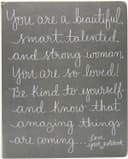 You are a beautiful,
smart, talented
and strong woman.
You are so loved!
Be kind to yourself
and know that
amazing things
are coming...
love
your notebook